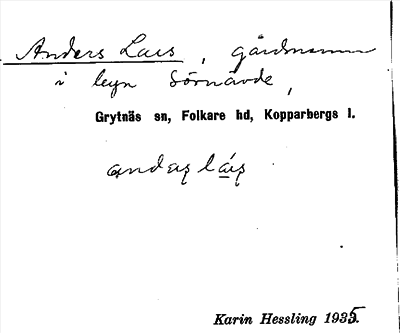 Anders Lars, gårdsnamn
i byn Sörnävde,
Grytnäs sn, Folkare hd, Kopparbergs l.
andaʂ láʂ
Karin Hessling 1935.